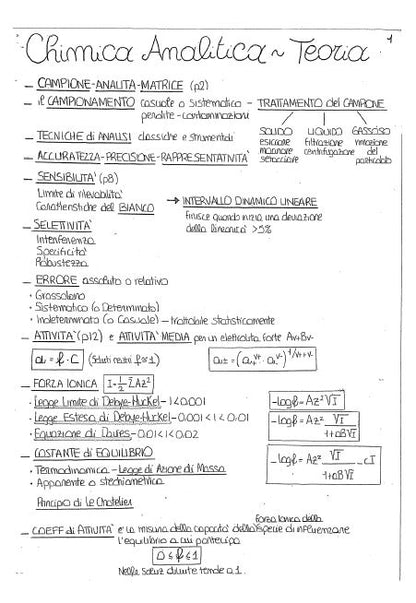 Chimica Analitica ~ Teoria 1
– CAMPIONE-ANALITA-MATRICE (p2)
– il CAMPIONAMENTO casuale o sistematico – TRATTAMENTO del CAMPIONE
perdite - contaminazioni
SOLIDO LIQUIDO GASSOSO
– TECNICHE di ANALISI classiche e strumentali
essiccare filtrazione rimozione
macinare centrifugazione del
setacciare particolato
– ACCURATEZZA-PRECISIONE-RAPPRESENTATIVITÀ
– SENSIBILITÀ (p8)
Limite di rilevabilità
Caratteristiche del BIANCO
→ INTERVALLO DINAMICO LINEARE
Finisce quando inizia una deviazione
della linearità >5%
– SELETTIVITÀ
Interferenza
Specificità
Robustezza
– ERRORE assoluto o relativo
· Grossolano
· Sistematico (o Determinato)
· Indeterminato (o Casuale) – trattabile statisticamente
– ATTIVITÀ (p12) e ATTIVITÀ MEDIA per un elettrolita forte Av+Bv-
a = f · C (Soluti neutri f≅1) a± = (a+^v+ · a-^v-)^1/v++v-
– FORZA IONICA I=½ΣAz²
· Legge Limite di Debye-Huckel – I<0.001 -logf = Az²√I
· Legge Estesa di Debye-Huckel – 0.001<I<0.01 -logf = Az² √I / 1+aB√I
· Equazione di Davies – 0.01<I<0.02 -logf = Az² √I / 1+aB√I - cI
– COSTANTE di EQUILIBRIO
· Termodinamica – Legge di Azione di Massa
· Apparente o stechiometrica
Principio di Le Chatelier
– COEFF di ATTIVITÀ è la misura della capacità della specie di influenzare
forza ionica della
l'equilibrio a cui partecipa
0≤f≤1
Nelle soluz diluite tende a 1.